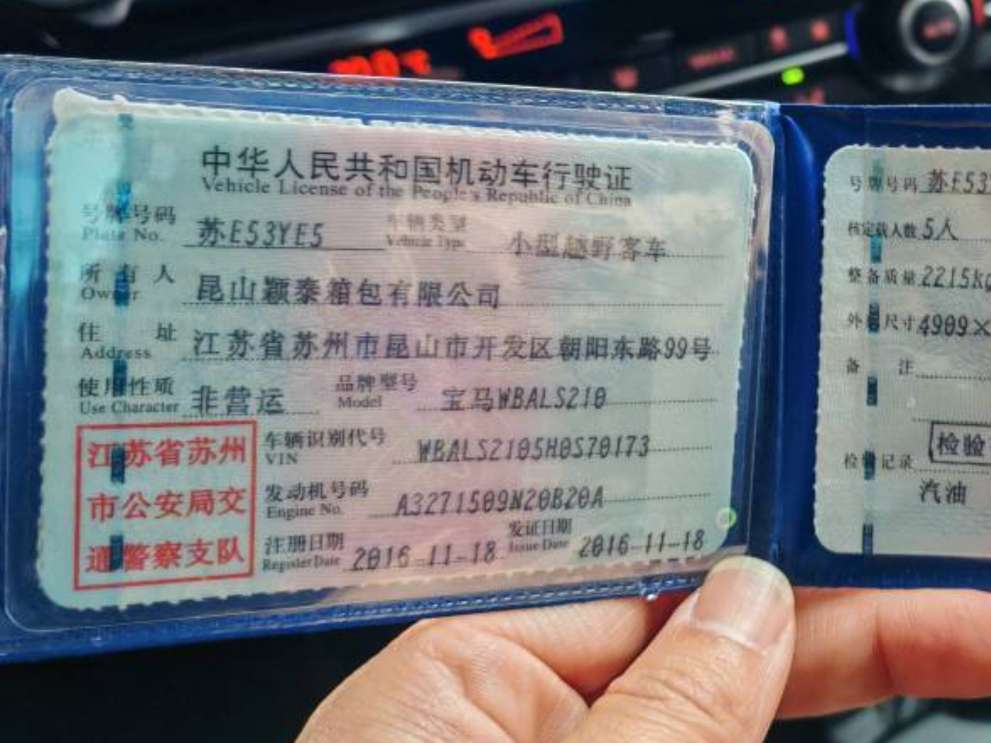 中华人民共和国机动车行驶证
Vehicle License of the People's Republic of China
号牌号码 苏E53YE5 车辆类型 小型越野客车
Plate No. Vehicle Type
所有人 昆山颖泰箱包有限公司
Owner
住址 江苏省苏州市昆山市开发区朝阳东路99号
Address
使用性质 非营运 品牌型号 宝马WBALS210
Use Character Model
江苏省苏州
市公安局交
通警察支队
车辆识别代号 WBALS2105H0S70173
VIN
发动机号码 A3271509N20B20A
Engine No.
注册日期 2016-11-18 发证日期 2016-11-18
Register Date Issue Date
号牌号码 苏E53
核定载人数 5人
整备质量 2215kg
外廓尺寸 4909×
备注
检验记录
检验
汽油